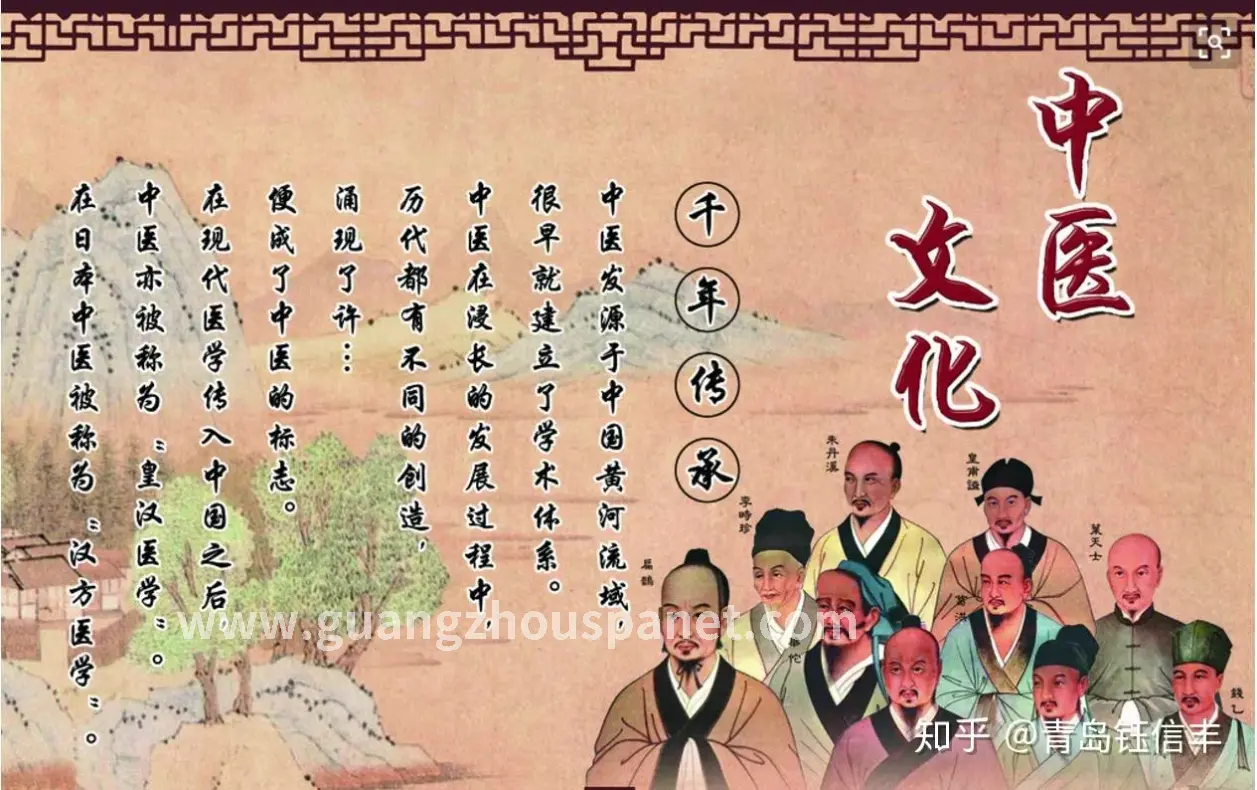 中医
文化
千年传承
中医发源于中国黄河流域，
很早就建立了学术体系。
中医在浸长的发展过程中，
历代都有不同的创造，
涌现了许…
便成了中医的标志。
在现代医学传入中国之后，
中医亦被称为“皇汉医学”。
在日本中医被称为“汉方医学”。
皇甫謐
朱丹溪
李時珍
扁鵲
葉天士
葛洪
華佗
錢乙
www.guangzhouspanet.com
知乎 @青岛钰信丰